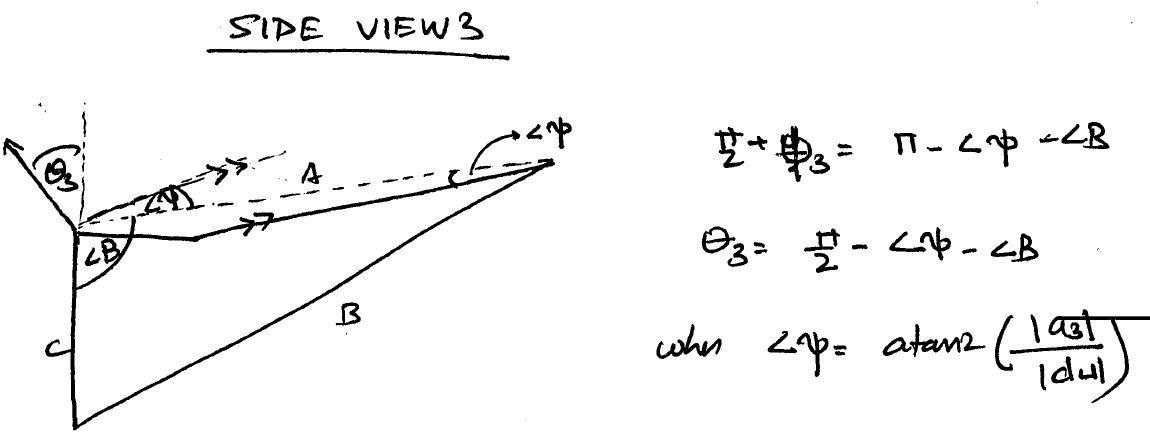 SIDE VIEW 3
∠ψ
θ3
A
∠ψ
∠B
B
C
π/2 + θ3 = π - ∠ψ - ∠B
θ3 = π/2 - ∠ψ - ∠B
when ∠ψ = atan2 (|a3| / |d4|)